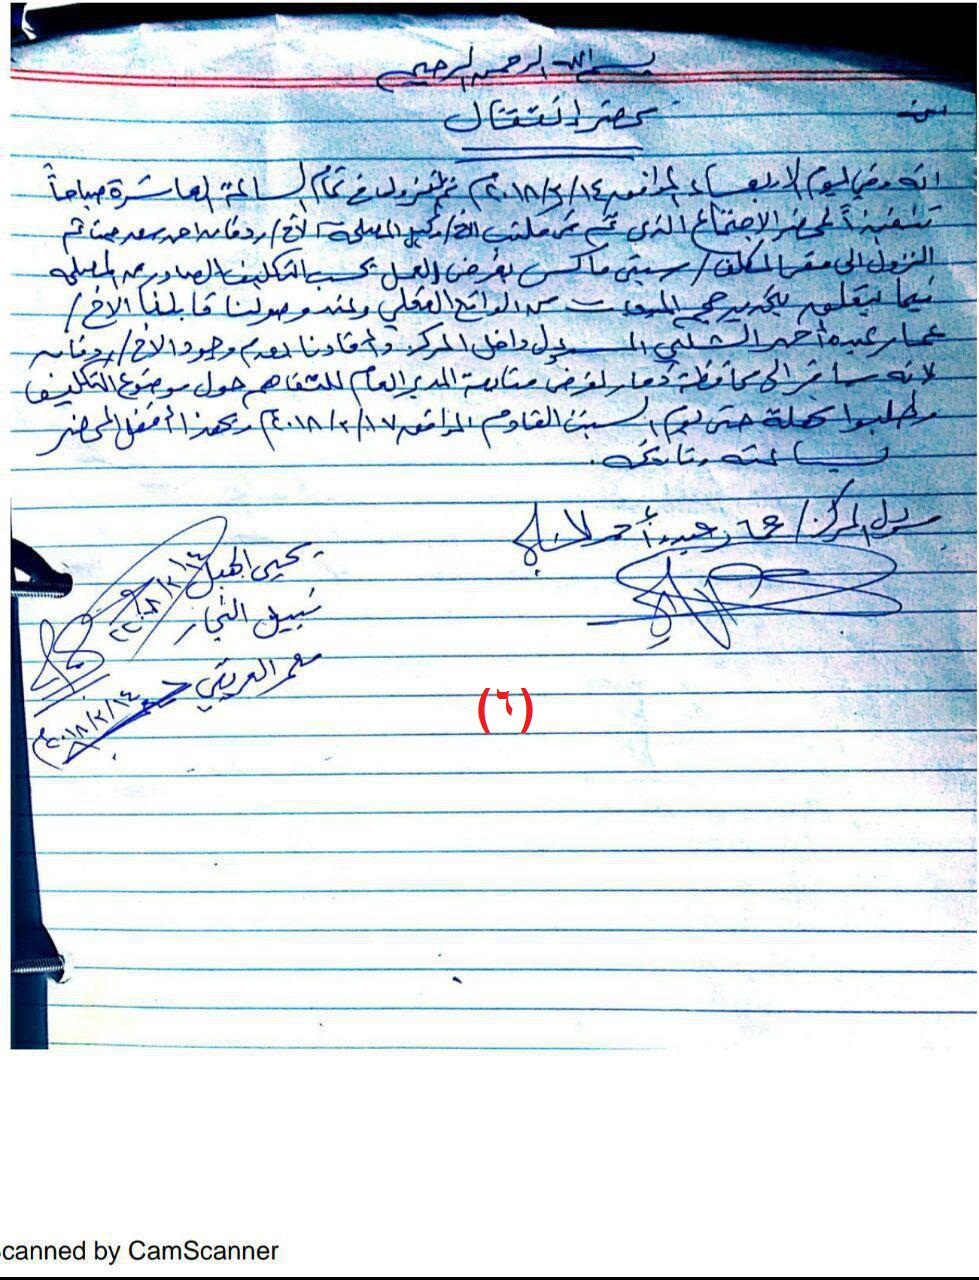 بسم الله الرحمن الرحيم
محضر إنتقال
انه في يوم الاربعاء الموافق ٢٠١٨/٢/١٤م تم النزول في تمام الساعة العاشرة صباحاً
تنفيذاً لمحضر الاجتماع الذي تم في مكتب الاخ/ وكيل المصلحة الاخ/ احمد سعد تم
النزول الى مقر المكلف/ سيتي ماكس بغرض العمل بحسب التكليف الصادر من المصلحة
فيما يتعلق بتحديد حجم المبيعات من الواقع الفعلي وعند وصولنا قابلنا الاخ/
عمار عبده أحمد الشلبي المسئول داخل المركز وأفادنا بعدم وجود الاخ/
لانه سافر الى محافظة ذمار لغرض متابعة المدير العام للتفاهم حول موضوع التكليف
وطلبوا مهلة حتى يوم السبت القادم الموافق ٢٠١٨/٢/١٧م وبهذا أقفل المحضر
بساعته وتاريخه.
مسئول المركز/ عمار عبده أحمد
يحيى الهبل
٢٠١٨/٢/١٤
نبيل النجار
معمر العريقي
٢٠١٨/٢/١٤
(٦)
Scanned by CamScanner